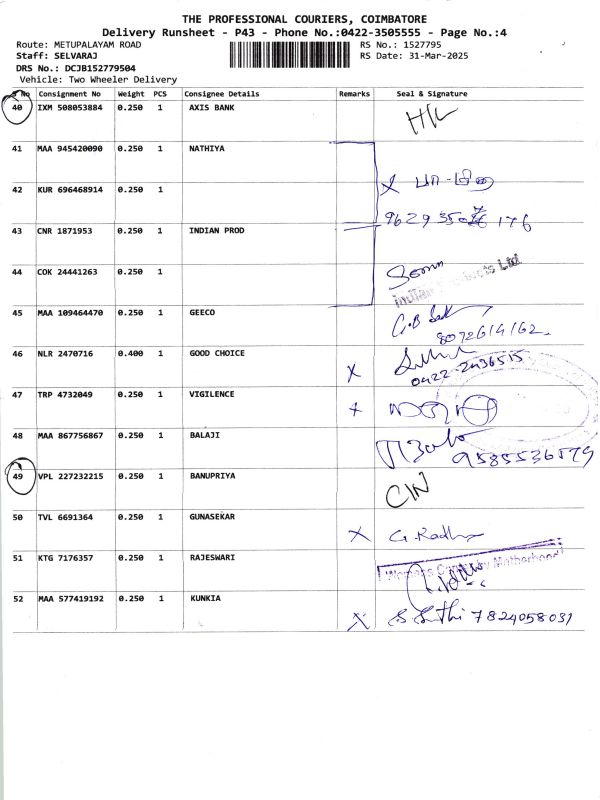 THE PROFESSIONAL COURIERS, COIMBATORE
Delivery Runsheet - P43 - Phone No.:0422-3505555 - Page No.:4
Route: METUPALAYAM ROAD RS No.: 1527795
Staff: SELVARAJ RS Date: 31-Mar-2025
DRS No.: DCJB152779504
Vehicle: Two Wheeler Delivery
S No Consignment No Weight PCS Consignee Details Remarks Seal & Signature
40 IXM 508053884 0.250 1 AXIS BANK
41 MAA 945420090 0.250 1 NATHIYA
42 KUR 696468914 0.250 1 X
43 CNR 1871953 0.250 1 INDIAN PROD
44 COK 24441263 0.250 1
Indian Products Ltd
45 MAA 109464470 0.250 1 GEECO
8072614162
46 NLR 2470716 0.400 1 GOOD CHOICE X
0422-2436515
47 TRP 4732049 0.250 1 VIGILENCE X
48 MAA 867756867 0.250 1 BALAJI
9585536579
49 VPL 227232215 0.250 1 BANUPRIYA CIN
50 TVL 6691364 0.250 1 GUNASEKAR X G. Radha
51 KTG 7176357 0.250 1 RAJESWARI
Motherhood
52 MAA 577419192 0.250 1 KUNKIA X 7824058031